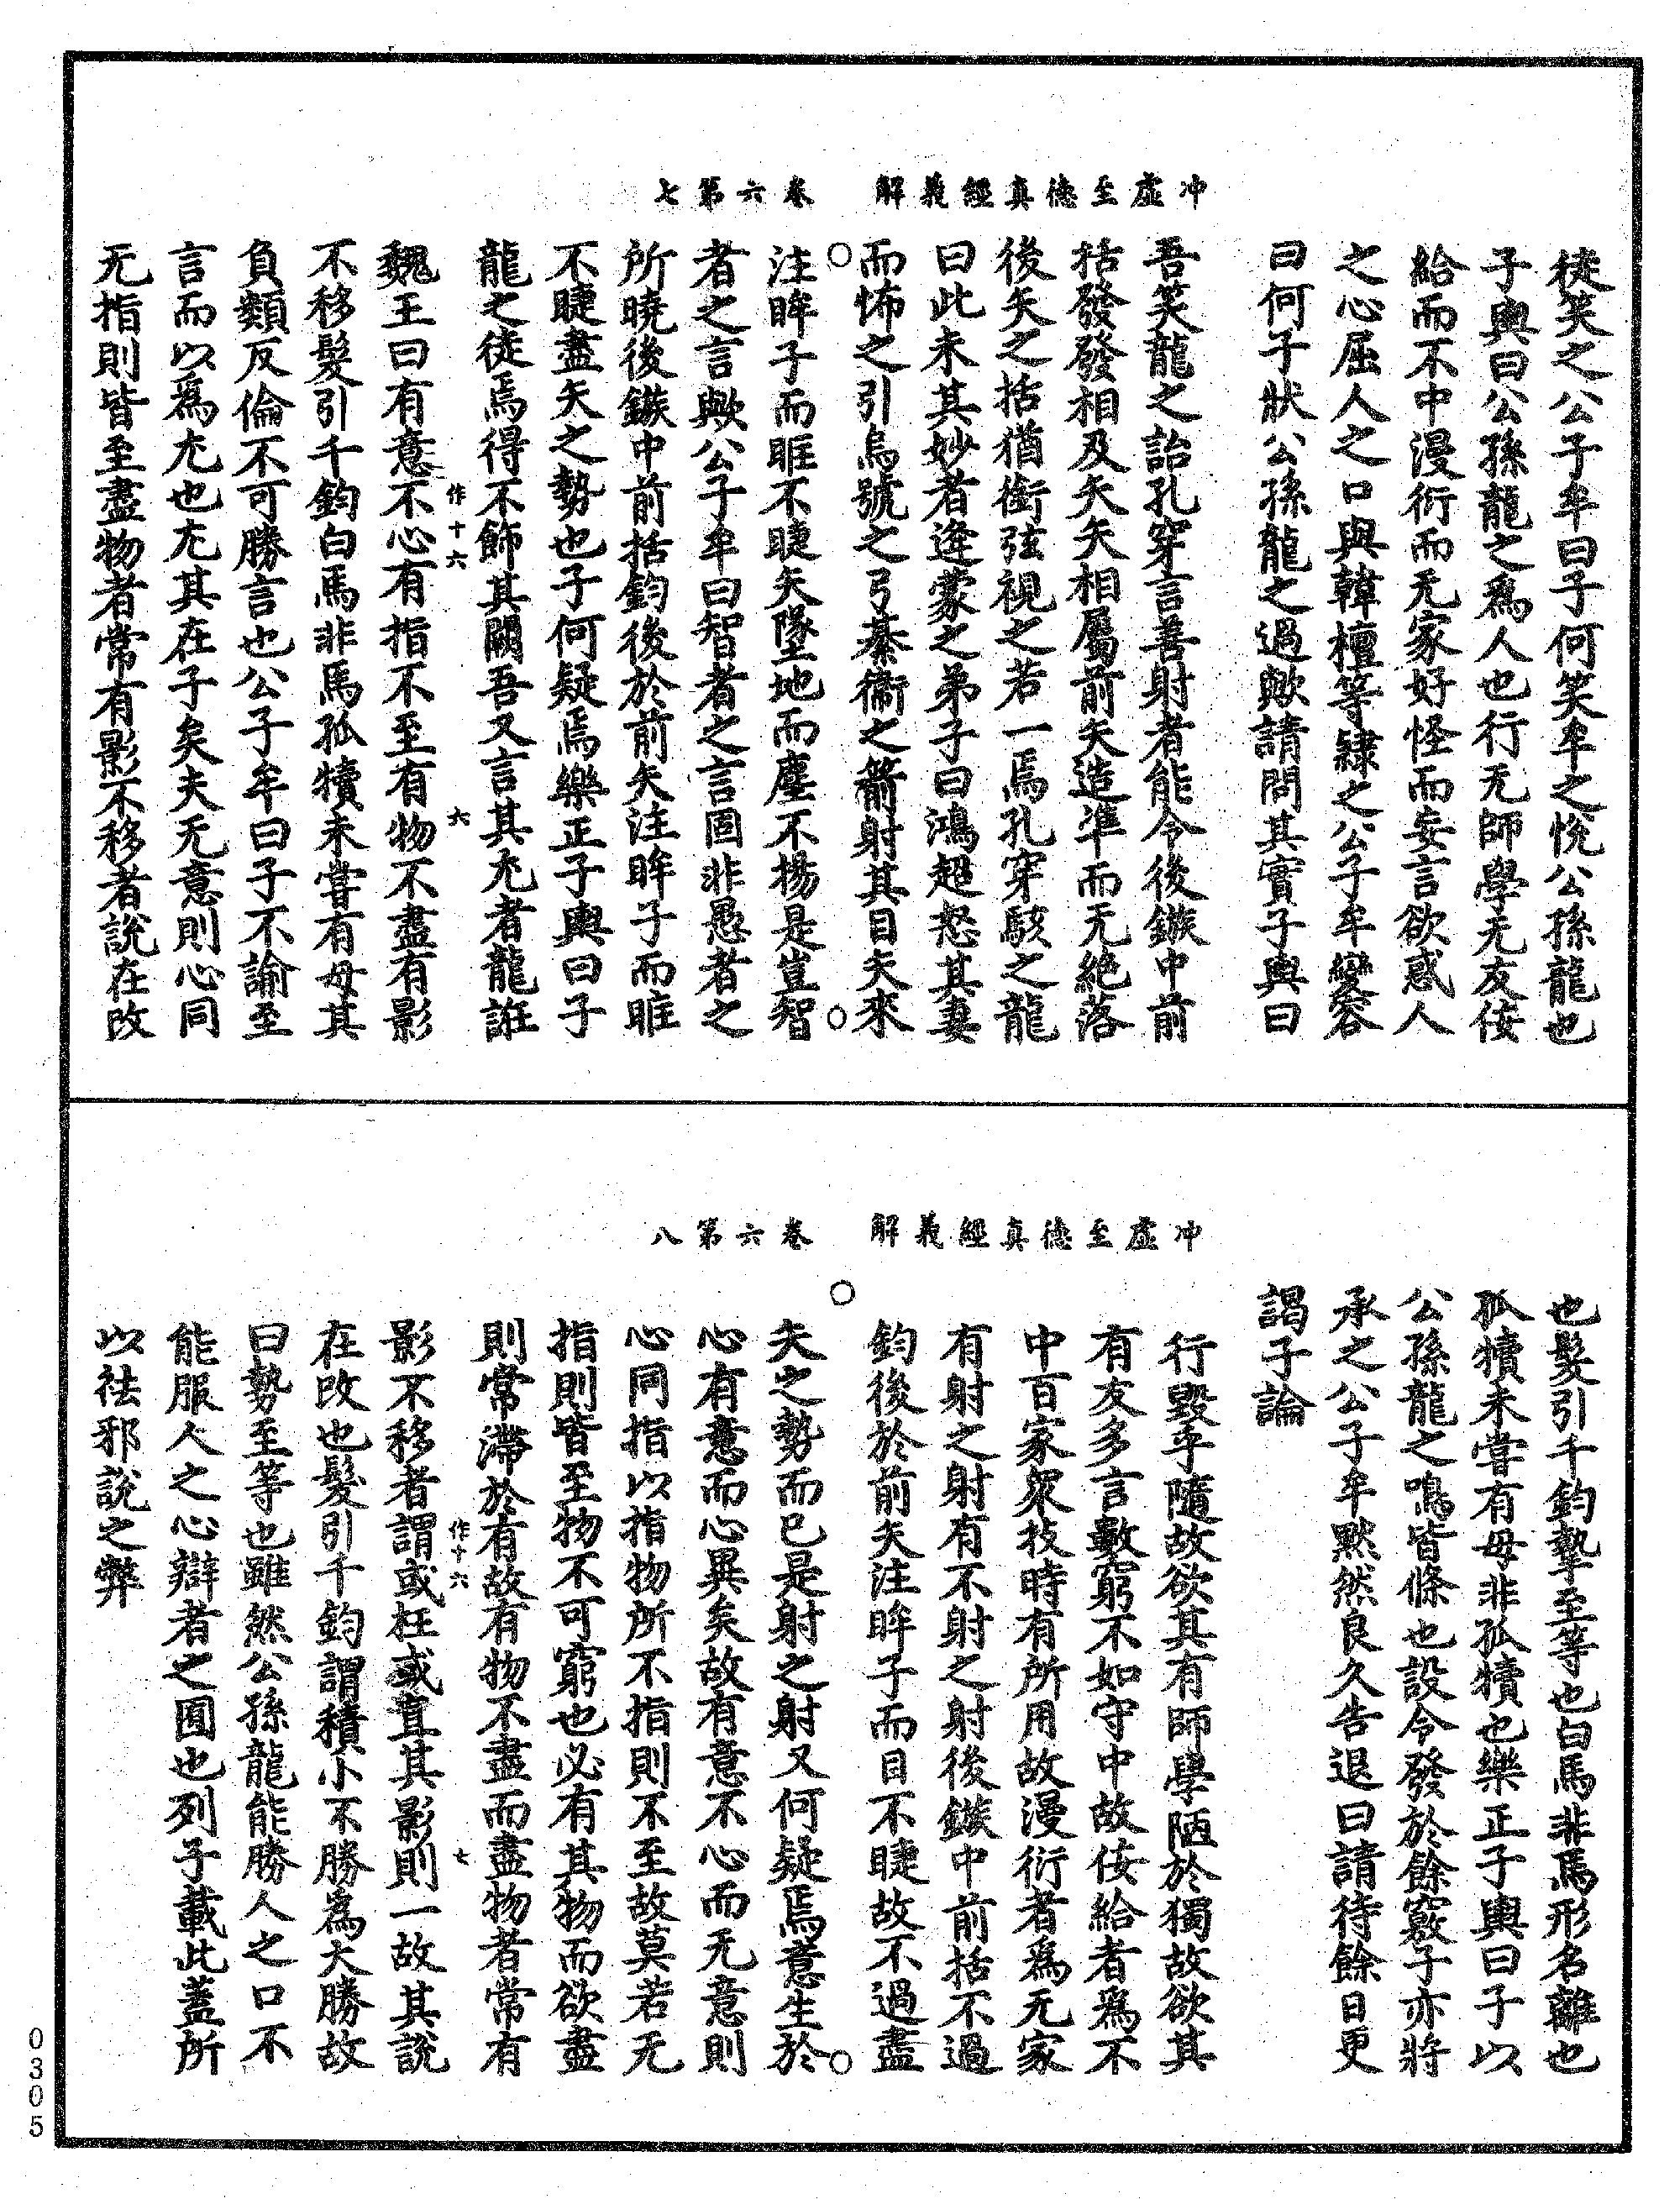 冲虛至德真經義解　卷六第七
徒笑之公子牟曰子何笑牟之悅公孫龍也
子輿曰公孫龍之爲人也行无師學无友佞
給而不中漫衍而无家好怪而妄言欲惑人
之心屈人之口與韓檀等肄之公子牟變容
曰何子狀公孫龍之過歟請問其實子輿曰
吾笑龍之詒孔穿言善射者能令後鏃中前
括發發相及矢矢相屬前矢造準而无絕落
後矢之括猶銜弦視之若一焉孔穿駭之龍
曰此未其妙者逄蒙之弟子曰鴻超怒其妻
而怖之引烏號之弓綦衞之箭射其目矢來
注眸子而眶不睫矢墜地而塵不揚是豈智
者之言歟公子牟曰智者之言固非愚者之
所曉後鏃中前括鈞後於前矢注眸子而眶
不睫盡矢之勢也子何疑焉樂正子輿曰子
龍之徒焉得不飾其闕吾又言其尤者龍誑
作十六　六
魏王曰有意不心有指不至有物不盡有影
不移髮引千鈞白馬非馬孤犢未嘗有母其
負類反倫不可勝言也公子牟曰子不諭至
言而以爲尤也尤其在子矣夫无意則心同
无指則皆至盡物者常有影不移者說在改
冲虛至德真經義解　卷六第八
也髮引千鈞勢至等也白馬非馬形名離也
孤犢未嘗有母非孤犢也樂正子輿曰子以
公孫龍之鳴皆條也設令發於餘竅子亦將
承之公子牟默然良久告退曰請待餘日更
謁子論
行毀乎隨故欲其有師學陋於獨故欲其
有友多言數窮不如守中故佞給者爲不
中百家衆技時有所用故漫衍者爲无家
有射之射有不射之射後鏃中前括不過
鈞後於前矢注眸子而目不睫故不過盡
矢之勢而已是射之射又何疑焉意生於
心有意而心異矣故有意不心而无意則
心同指以指物所不指則不至故莫若无
指則皆至物不可窮也必有其物而欲盡
則常滯於有故有物不盡而盡物者常有
作十六　七
影不移者謂或枉或直其影則一故其說
在改也髮引千鈞謂積小不勝為大勝故
曰勢至等也雖然公孫龍能勝人之口不
能服人之心辯者之囿也列子載此蓋所
以祛邪說之弊
0305